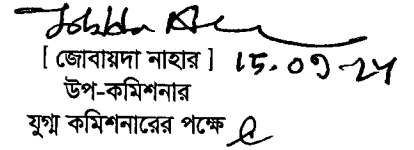 [ জোবায়দা নাহার ] 15.09.24
উপ-কমিশনার
যুগ্ম কমিশনারের পক্ষে